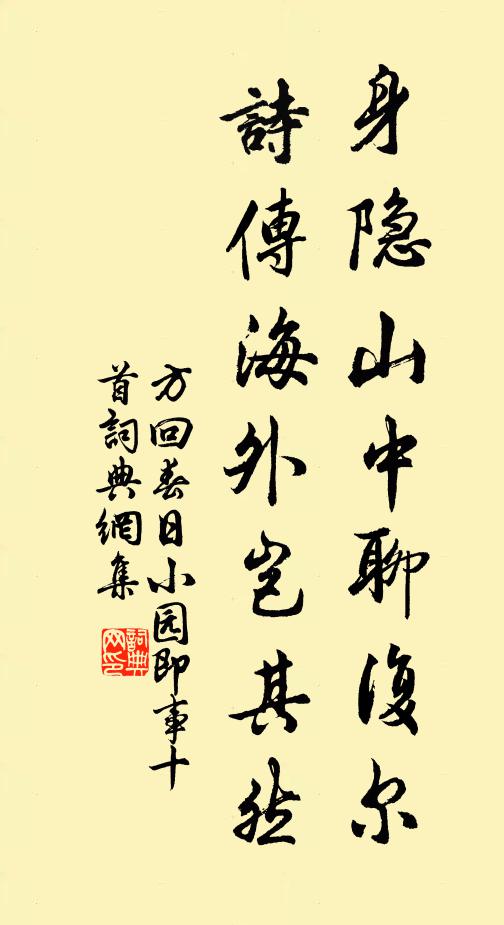 身隐山中聊復尔
詩傳海外岂其然
方回春日小园即事十
首詞典網集
詞典
网印